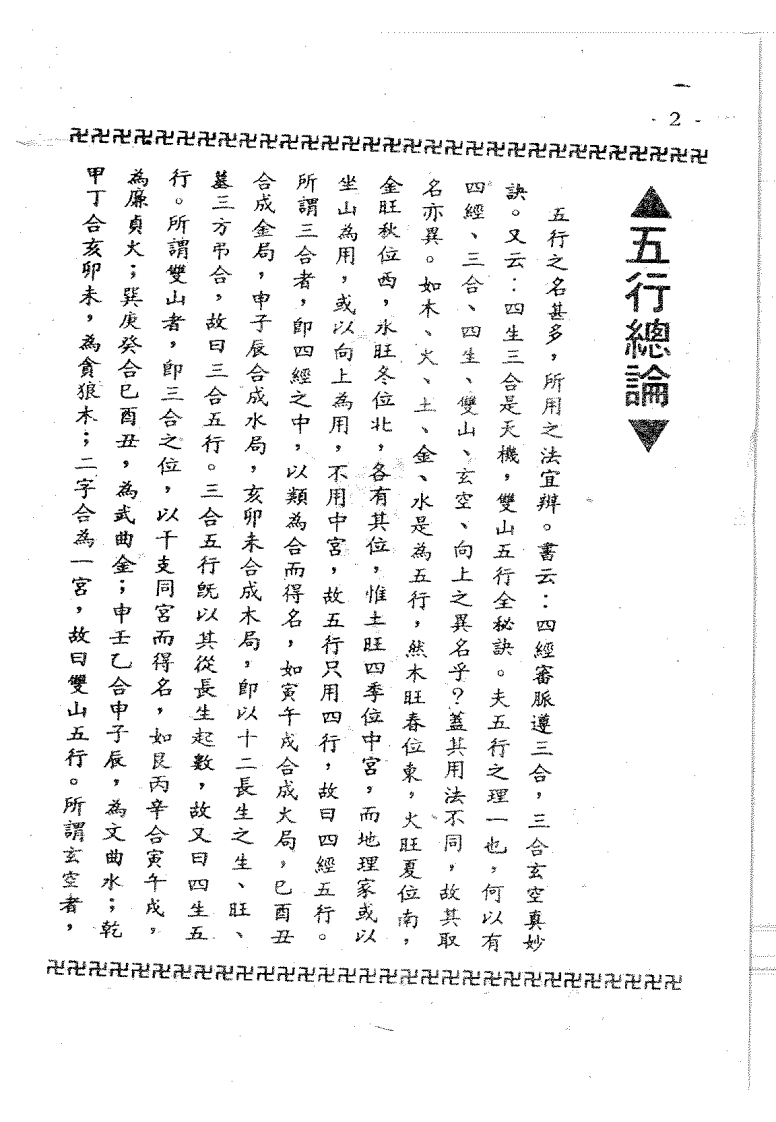 - 2 -
▲五行總論▼
五行之名甚多，所用之法宜辨。書云：四經審脈遵三合，三合玄空真妙
訣。又云：四生三合是天機，雙山五行全秘訣。夫五行之理一也，何以有
四經、三合、四生、雙山、玄空、向上之異名乎？蓋其用法不同，故其取
名亦異。如木、火、土、金、水是為五行，然木旺春位東，火旺夏位南，
金旺秋位西，水旺冬位北，各有其位，惟土旺四季位中宮，而地理家或以
坐山為用，或以向上為用，不用中宮，故五行只用四行，故曰四經五行。
所謂三合者，即四經之中，以類為合而得名，如寅午戌合成火局，巳酉丑
合成金局，申子辰合成水局，亥卯未合成木局，即以十二長生之生、旺、
墓三方弔合，故曰三合五行。三合五行既以其從長生起數，故又曰四生五
行。所謂雙山者，即三合之位，以干支同宮而得名，如艮丙辛合寅午戌，
為廉貞火；巽庚癸合巳酉丑，為武曲金；申壬乙合申子辰，為文曲水；乾
甲丁合亥卯未，為貪狼木；二字合為一宮，故曰雙山五行。所謂玄空者，